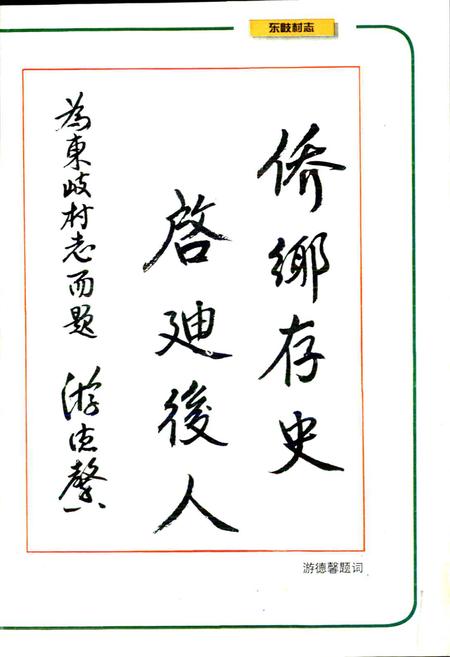 东岐村志
侨鄉存史
啓廸後人
為東岐村志而题
游德馨
游德馨题词